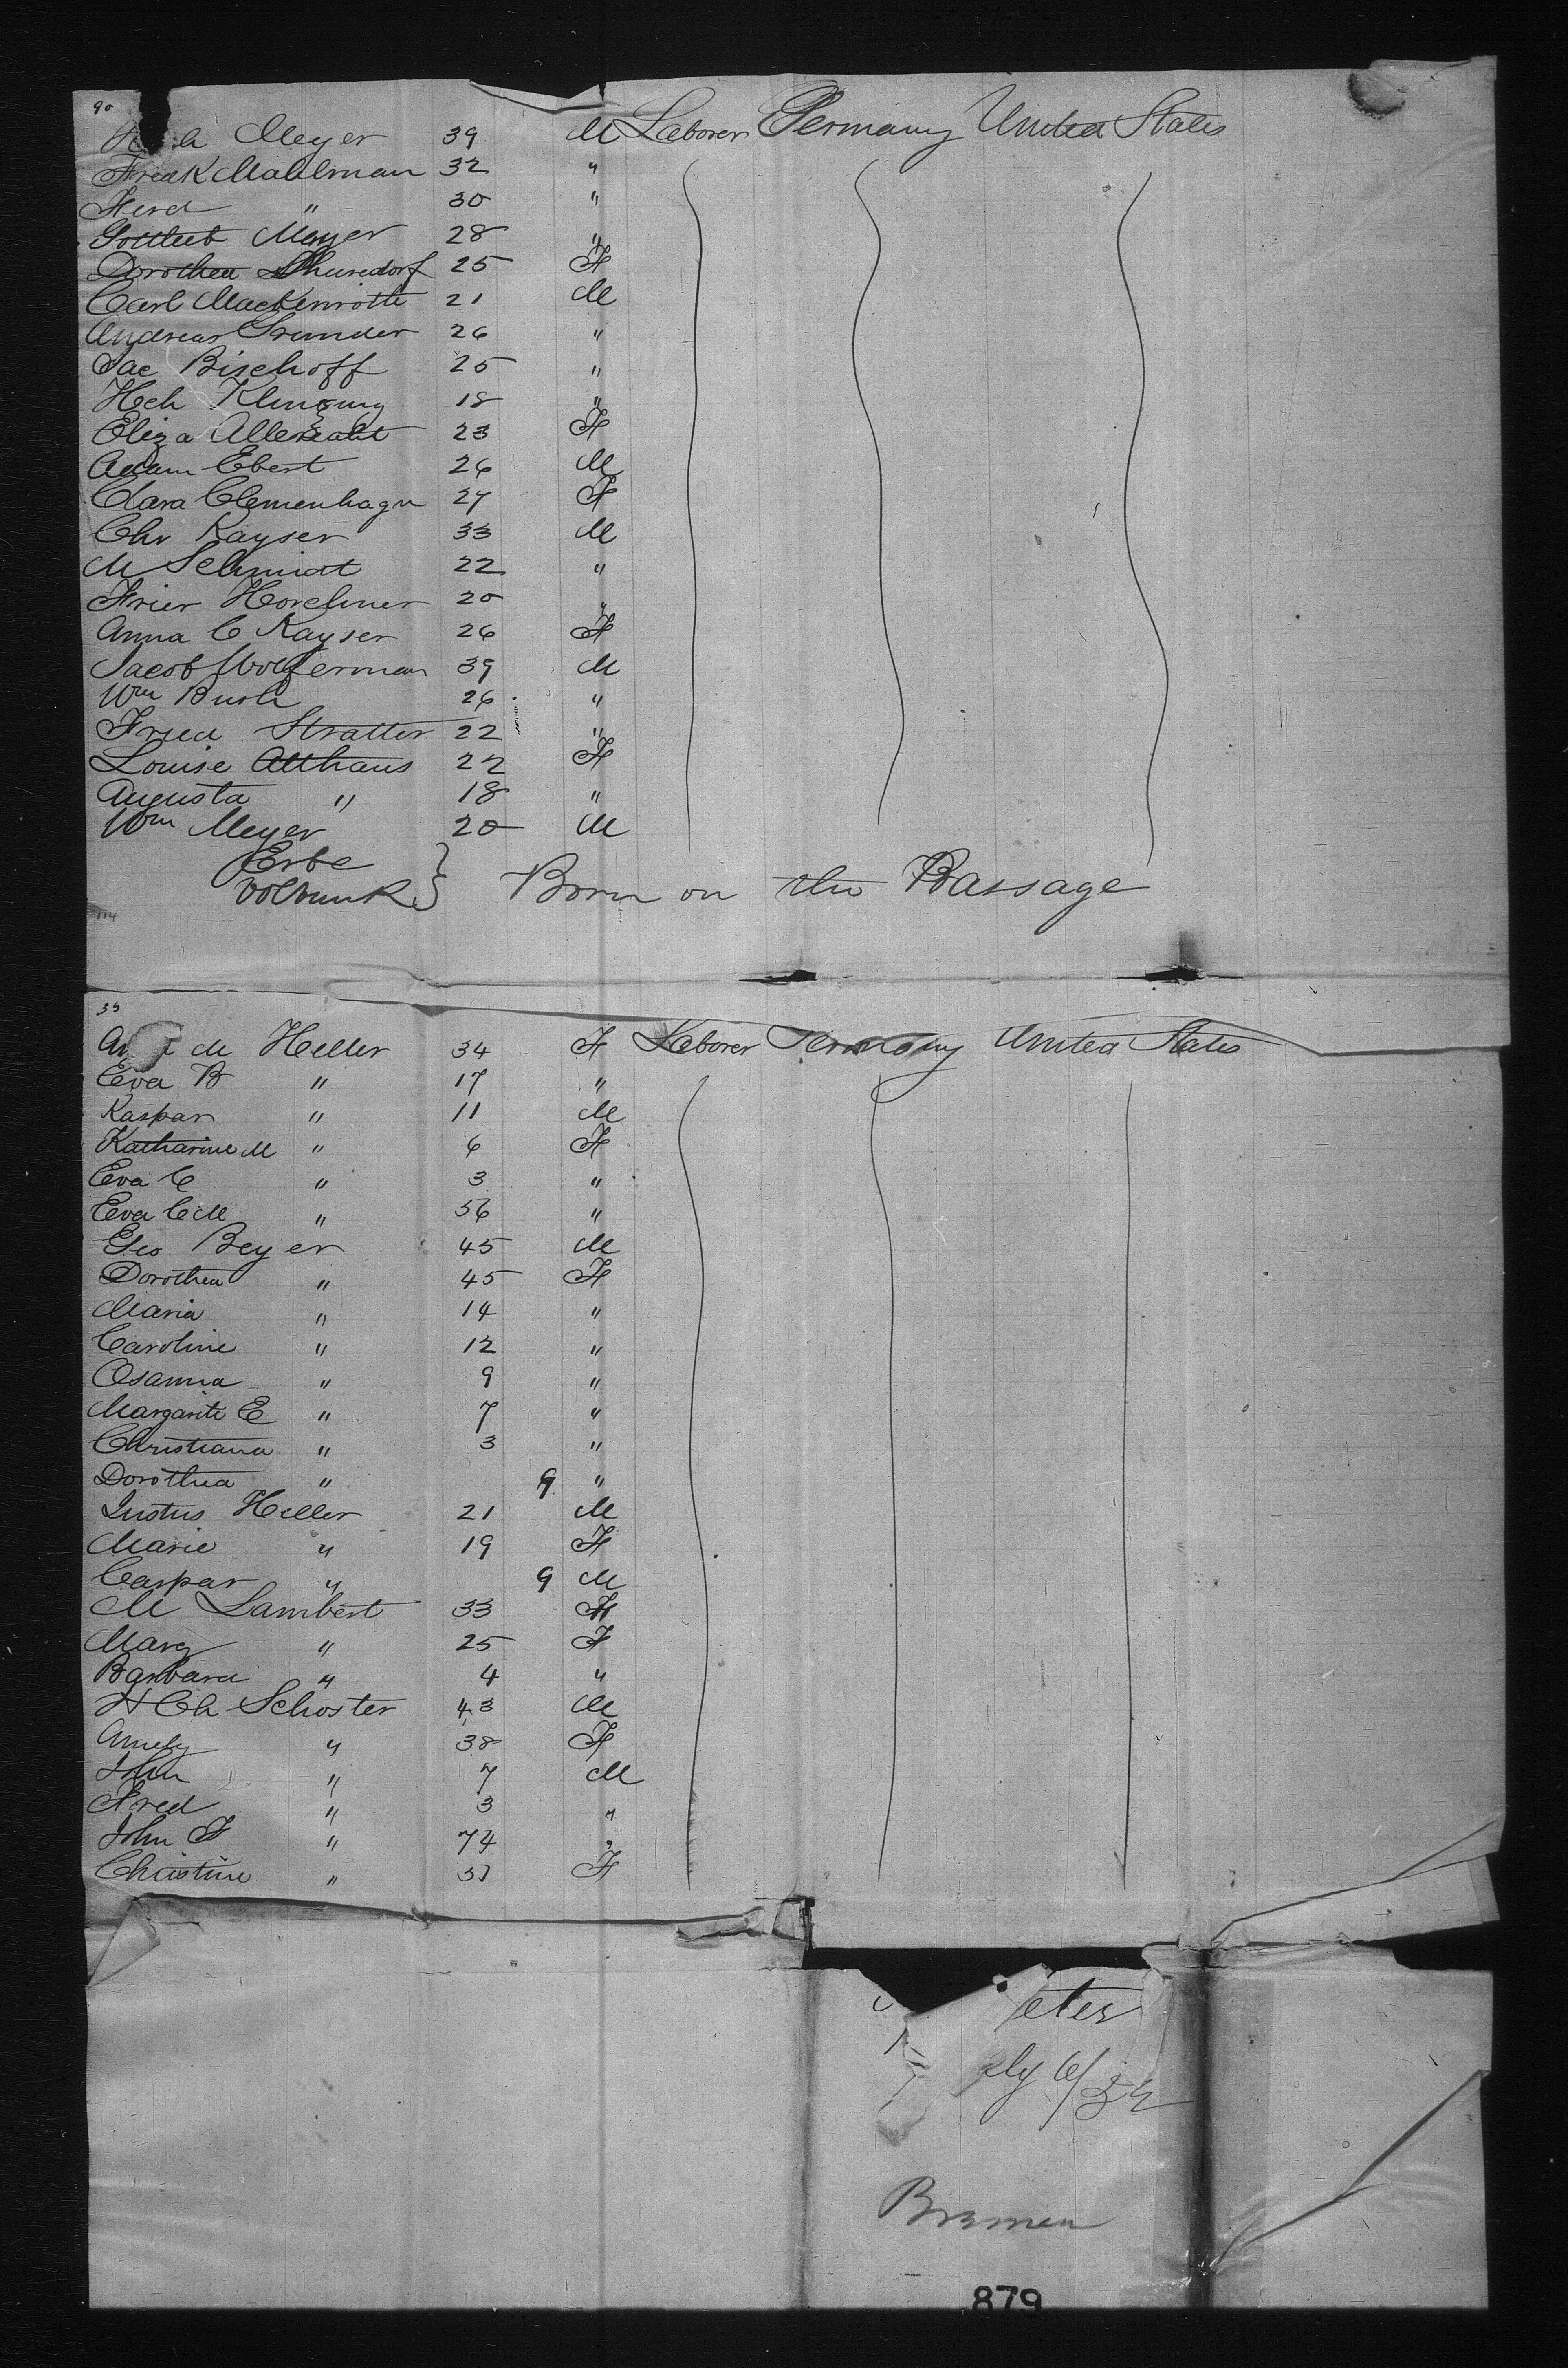 90
Meyer 39 M Laborer Germany United States
Fredk Mahlman 32 "
Ferd " 30 "
Gottlieb Meyer 28 "
Dorothea 25 F
Carl Mackenrotte 21 M
Andreas Grunder 26 "
Jac Bischoff 25 "
Hch 18 "
Eliza 23 F
Adam Ebert 26 M
Clara Clemenhagn 27 F
Chr Kayser 33 M
M Schmidt 22 "
20 "
Anna C Kayser 26 F
Jacob Wolferman 39 M
Wm Bush 26 "
Fried Stratter 22 "
Louise Althaus 22 F
Augusta " 18 "
Wm Meyer 20 M
Erbe
Volbunk } Born on the Passage
114
M Heller 34 F Laborer Germany United States
Eva B " 17 "
Kaspar " 11 M
Katharine M " 6 F
Eva C " 3 "
Eva C M " 56 "
Geo Beyer 45 M
Dorothea " 45 F
Maria " 14 "
Caroline " 12 "
Osanna " 9 "
Margarite E " 7 "
Christiana " 3 "
Dorothea " 9 "
Justus Heller 21 M
Marie " 19 F
Caspar " 9 M
M Lambert 33
Marg " 25 F
Barbara " 4 "
H Ch Schoster 43 M
" 38 F
John " 7 M
Fred " 3 "
John F " 74 "
Christine " F
eter
ly 6/52
Bremen
879